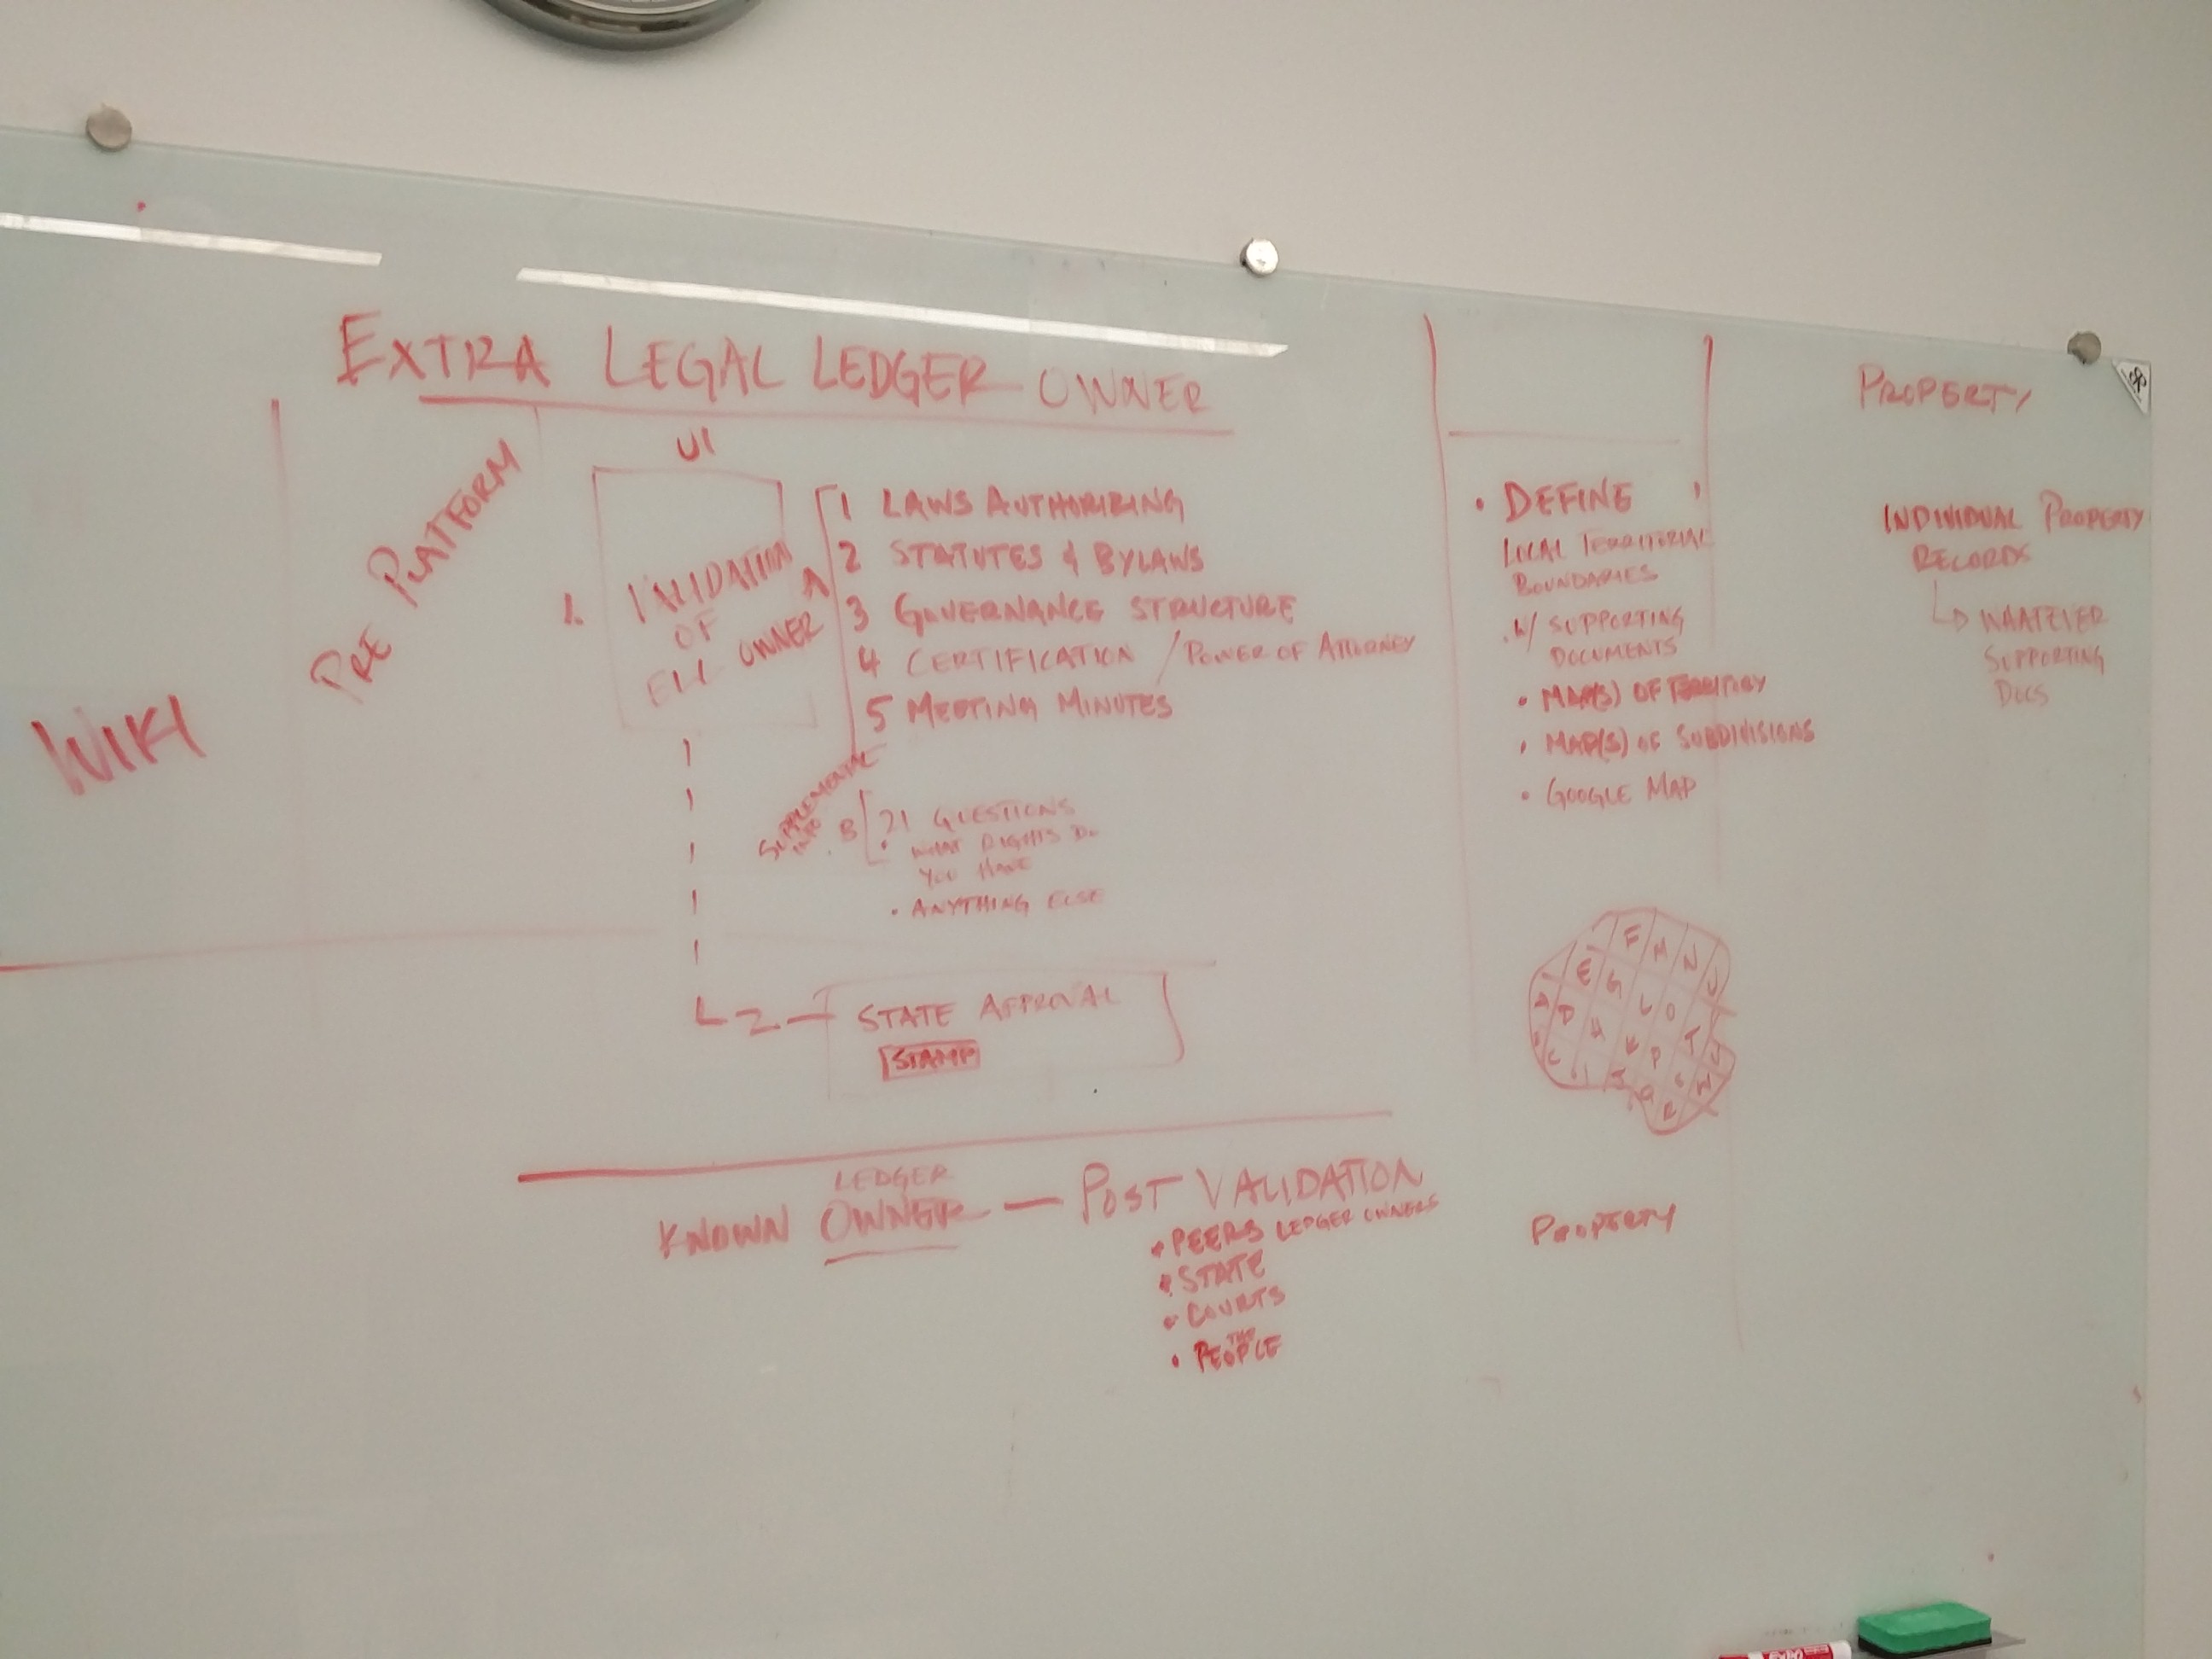 EXTRA LEGAL LEDGER OWNER
WIKI
PRE PLATFORM
UI
1.
VALIDATION
OF
ELL OWNER
A
1 LAWS AUTHORIZING
2 STATUTES & BYLAWS
3 GOVERNANCE STRUCTURE
4 CERTIFICATION / POWER OF ATTORNEY
5 MEETING MINUTES
SUPPLEMENTAL
INFO
B
21 QUESTIONS
• WHAT RIGHTS DO
YOU HAVE
• ANYTHING ELSE
2
STATE APPROVAL
STAMP
LEDGER
KNOWN OWNER — POST VALIDATION
• PEERS LEDGER OWNERS
• STATE
• COURTS
• THE
PEOPLE
• DEFINE
LOCAL TERRITORIAL
BOUNDARIES
W/ SUPPORTING
DOCUMENTS
• MAP(S) OF TERRITORY
• MAP(S) OF SUBDIVISIONS
• GOOGLE MAP
F
E G L O
T
K P
PROPERTY
PROPERTY
INDIVIDUAL PROPERTY
RECORDS
WHATEVER
SUPPORTING
DOCS
EXPO